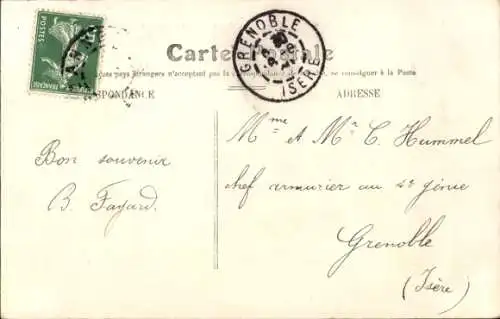 POSTES
GRENOBLE
ISÈRE
Carte Postale
pays étrangers n'acceptent pas la se renseigner à la Poste
ADRESSE
Mme et Mr C. Hummel
chef armurier au 4e génie
Grenoble
(Isère)
Bon souvenir
B. Fayard.